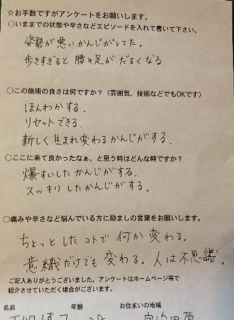 ☆お手数ですがアンケートをお願いします。
○いままでの状態や辛さなどエピソードを入れて書いて下さい。
姿勢が悪いかんじがしてた。
歩きすぎると腰や足がだるくなる
○この施術の良さは何ですか？（雰囲気、技術などでもOKです）
ほんわかする。
リセットできる
新しく生まれ変わるかんじがする。
○ここに来て良かったなぁ。と思う時はどんな時ですか？
爆すいしたかんじがする。
スッキリしたかんじがする。
○痛みや辛さなど悩んでいる方に励ましの言葉をお願いします。
ちょっとしたコトで何か変わる。
意識だけでも変わる。人は不思議。
ご記入ありがとうございました。アンケートはホームページ等で
紹介させていただく場合がございます。
名前 年齢 お住まいの地域